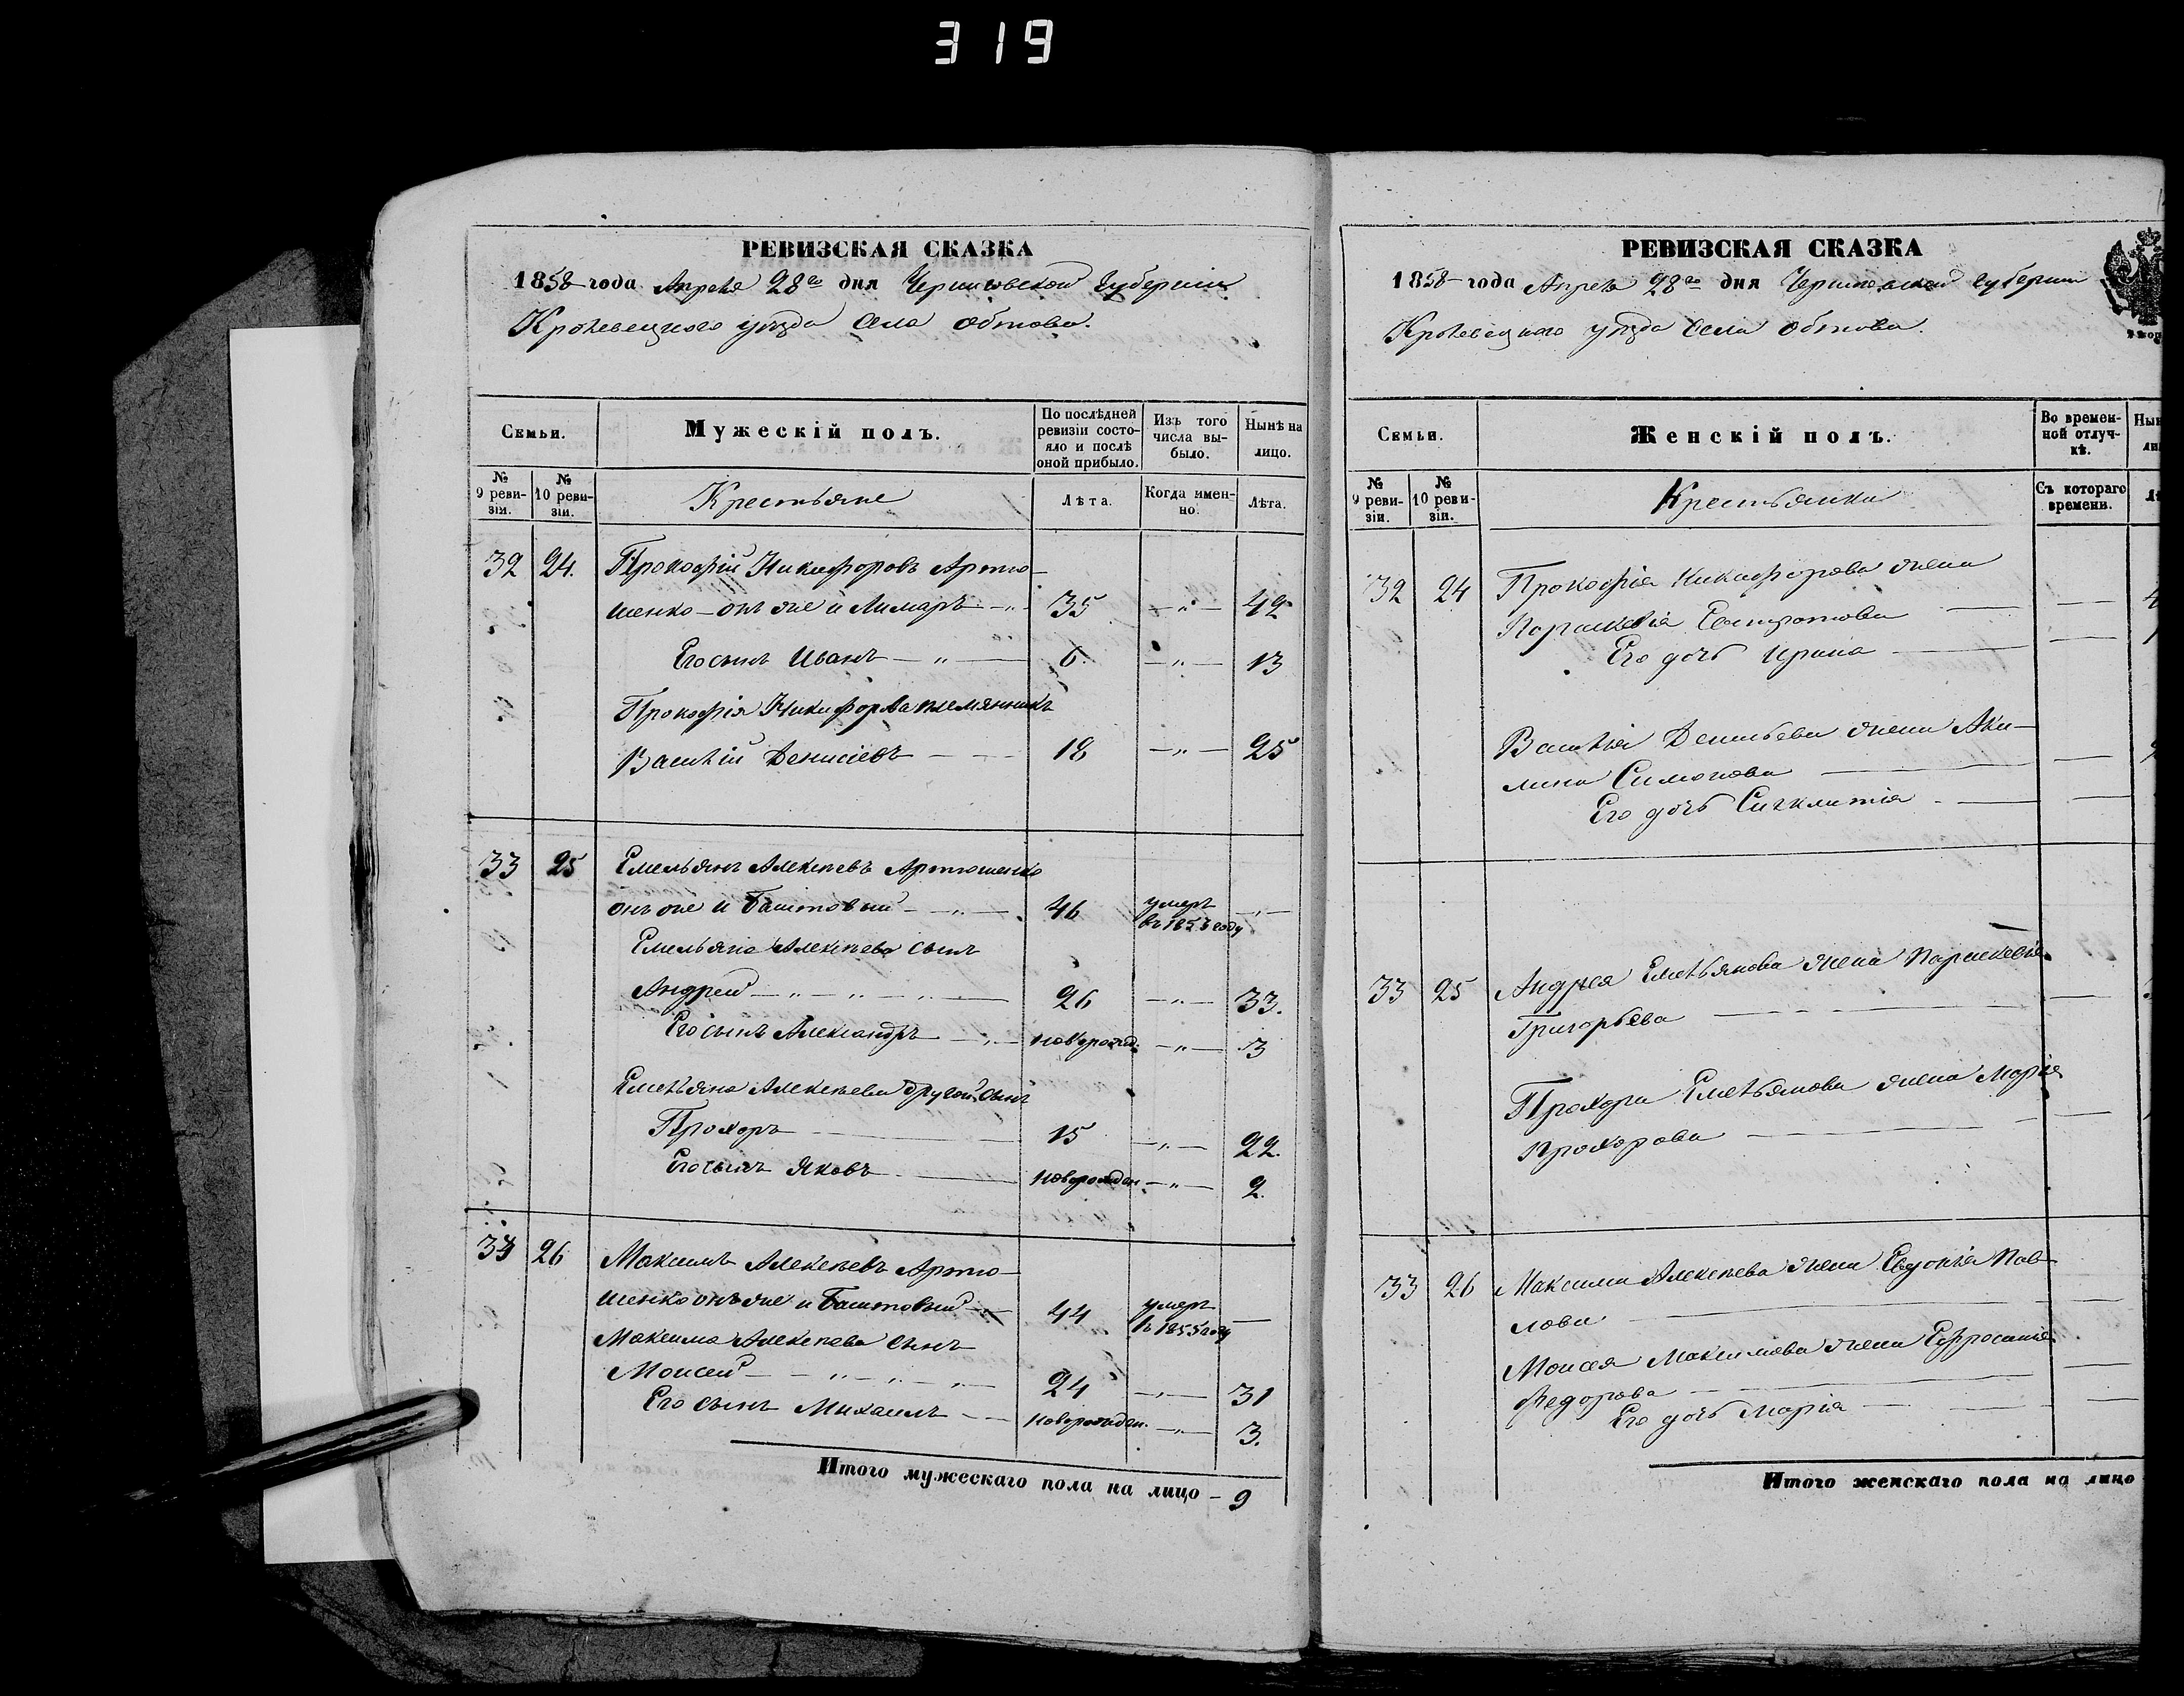 319
РЕВИЗСКАЯ СКАЗКА
1858 года Апреля 28го дня Черниговской Губерніи
Кролевецкого уѣзда села Обтова.
Семьи.
Мужескій полъ.
По послѣдней ревизіи состояло и послѣ оной прибыло.
Изъ того числа выбыло.
Нынѣ на лицо.
№ 9 ревизіи.
№ 10 ревизіи.
Крестьяне
Лѣта.
Когда именно.
Лѣта.
32 24. Прокофій Никифоровъ Артю-
шенко-онъ же и Лимаръ 35 — „ — 42
Его сынъ Иванъ — „ — 6. — „ — 13
Прокофія Никифорова племянникъ
Василій Денисіевъ 18 — „ — 25
33 25 Емельянъ Алексѣевъ Артюшенко
онъ же и Баштовый — „ — 46 умеръ въ 1853 году — „ —
Емельяна Алексѣева сынъ
Андрей — „ — „ — „ — 26 — „ — 33.
Его сынъ Александръ — „ — новорожд. — „ — 3
Емельяна Алексѣева другой сынъ
Прохоръ 15 — „ — 22.
Его сынъ Яковъ новорожден. — „ — 2.
34 26 Максимъ Алексѣевъ Артю-
шенко онъ же и Баштовый 44 умеръ въ 1855 году —
Максима Алексѣева сынъ
Моисей — „ — „ — „ — 24 — „ — 31
Его сынъ Михаилъ новорожден. — „ — 3.
Итого мужескаго пола на лицо - 9
РЕВИЗСКАЯ СКАЗКА
1858 года Апреля 28го дня Черниговской Губерніи
Кролевецкого уѣзда села Обтова.
Семьи.
Женскій полъ.
Во временной отлучкѣ.
№ 9 ревизіи.
№ 10 ревизіи.
Крестьянки
Съ котораго времени.
32 24 Прокофія Никифорова жена
Параскевія Евстратова
Его дочь Ирина
Василія Денисьева жена Аки-
лина Симонова
Его дочь Сигклитія
33 25 Андрея Емельянова жена Параскевія
Григорьева
Прохора Емельянова жена Марія
Прохорова
33 26 Максима Алексѣева жена Евдокія Пав-
лова
Моисея Максимова жена Ефросинія
Федорова
Его дочь Марія
Итого женскаго пола на лицо